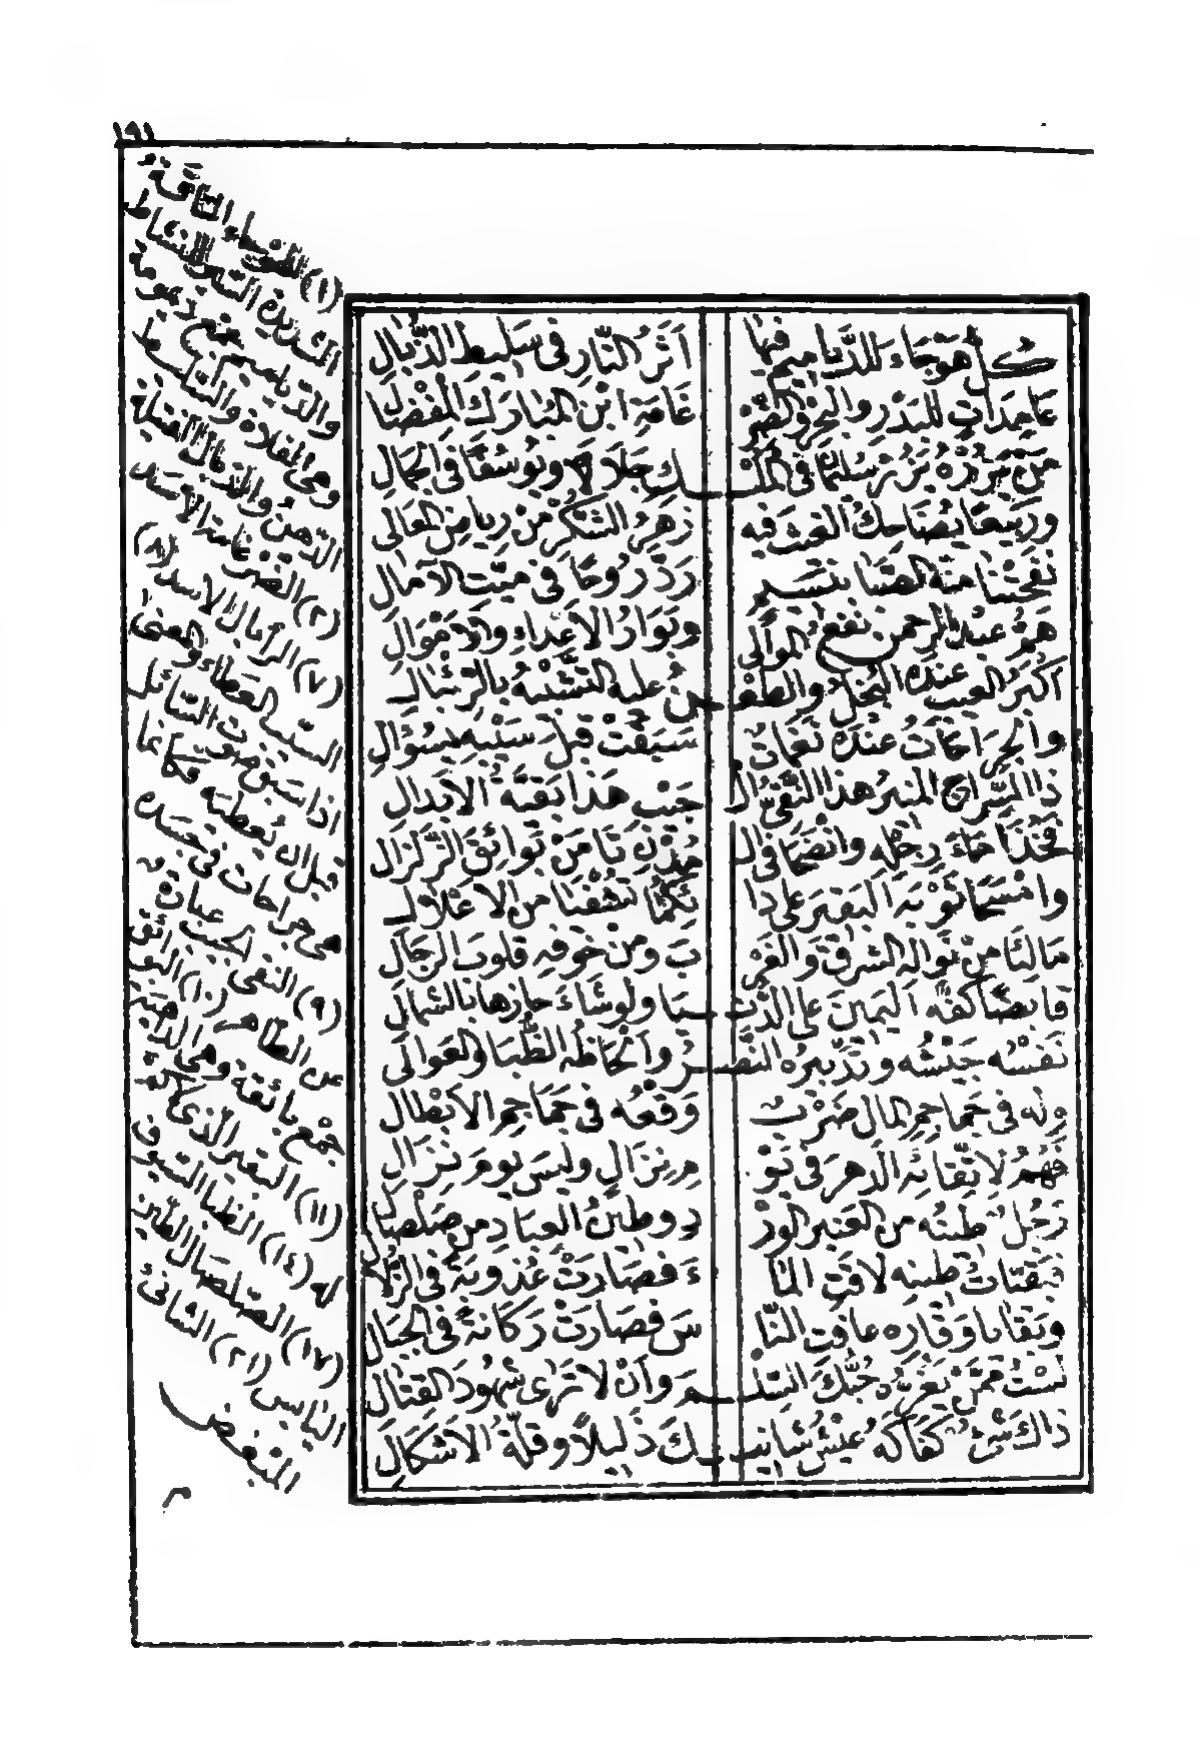 ١٩١
كل هوجاء للدياميم فيها
أثر النار في سليط الذبال
عامدات للبدر والبحر والضر
غامة ابن المبارك المفضال
من يزره يزر سليمان في الملـ
ـك جلالا ويوسفا في الجمال
وربيعا يضاحك الغيث فيه
زهر الشكر من رياض المعالي
نفحتنا منه الصبا بنسيم
رد روحا في ميت الآمال
هم عبد الرحمن نفع الموالي
وبوار الاعداء والاموال
اكبر العيب عنده البخل والطعـ
ـن عليه التشبيه بالرئبال
والجراحات عنده نغمات
سبقت قبل سيبه بسؤال
ذا السراج المنير هذا النقي الـ
جيب هذا بقية الابدال
فخذا ماء رجله وانضحا في الـ
مدن تأمن بوائق الزلزال
وامسحا ثوبه البقير على دا
ئكما تشفيا من الاعلال
مالئا من نواله الشرق والغر
ب ومن خوفه قلوب الرجال
قابضا كفه اليمين على الدنـ
ـيا ولو شاء حازها بالشمال
نفسه جيشه وتدبيره النصـ
ـر وألحاظه الظبا والعوالي
وله في جماجم المال ضرب
وقعه في جماجم الابطال
فهم لاتقائه الدهر في يو
م نزال وليس يوم نزال
رجل طينه من العنبر الور
د وطين العباد من صلصال
فبقيات طينه لاقت الما
ء فصارت عذوبة في الزلال
وبقايا وقاره عافت النا
س فصارت ركانة في الجبال
لست ممن يغره حبك السلـ
ـم وأن لا ترى شهود القتال
ذاك شئ كفاكه عيش شانيـ
ـك ذليلا وقلة الاشكال
(١) الهوجاء الناقة
الشديدة السير والنشاط
والدياميم جمع ديمومة
وهى المفلاة والسليط
الدهن والذبال الفتيلة
(٢) الضرغامة الأسد
(٧) الرئبال الاسد (٨)
السيب العطاء والمعنى
اذا سبق صوت السائل
قبل ان يعطيه فكانما
هى جراحات في جسده
(٩) النقى الجيب عبارة
عن الطاهر (١٠) البوائق
جمع بائقة وهى الداهية
(١١) البقير الذى لا كم
له (١٤) الظبا السيوف
(١٧) الصلصال الطين
اليابس (٢١) الشانئ
المبغض
م